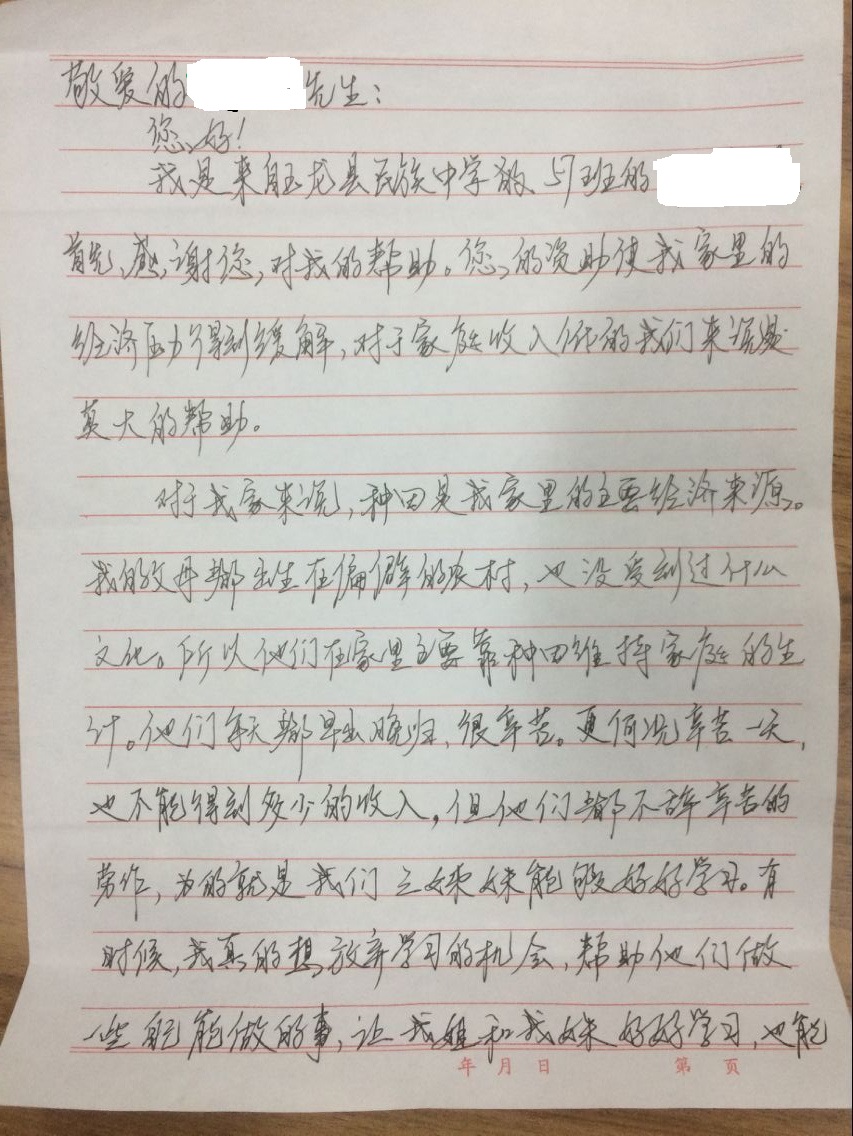 敬爱的 先生：
您好！
我是来自玉龙县民族中学的57班的
首先，感谢您，对我的帮助。您的资助使我家里的
经济压力得到缓解，对于家庭收入低的我们来说是
莫大的帮助。
对于我家来说，种田是我家里的主要经济来源。
我的父母都出生在偏僻的农村，也没受到过什么
文化。所以他们在家里主要靠种田维持家庭的生
计。他们每天都早出晚归，很辛苦。更何况辛苦一天，
也不能得到多少的收入，但他们都不辞辛苦的
劳作，为的就是我们三姊妹能够好好学习。有
时候，我真的想放弃学习的机会，帮助他们做
一些自己能做的事，让我姐和我妹好好学习，也能
年 月 日 第 页